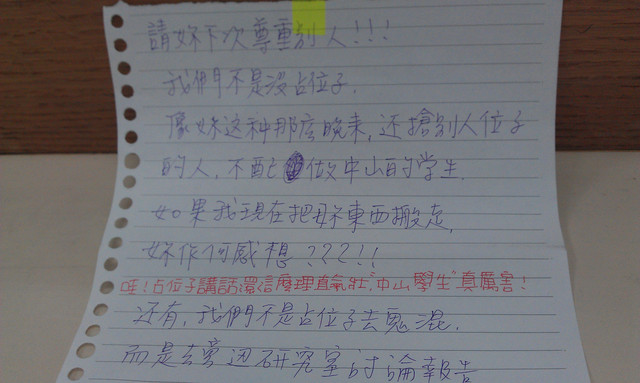 請妳下次尊重別人!!!
我們不是沒占位子.
像妳这种那麼晚來,还搶別人位子
的人,不配做中山的学生.
如果我現在把妳東西搬走,
妳作何感想???!!
哇!占位子講話還這麼理直氣壯,"中山學生"真厲害!
还有,我們不是占位子去鬼混.
而是去旁边研究室討論報告